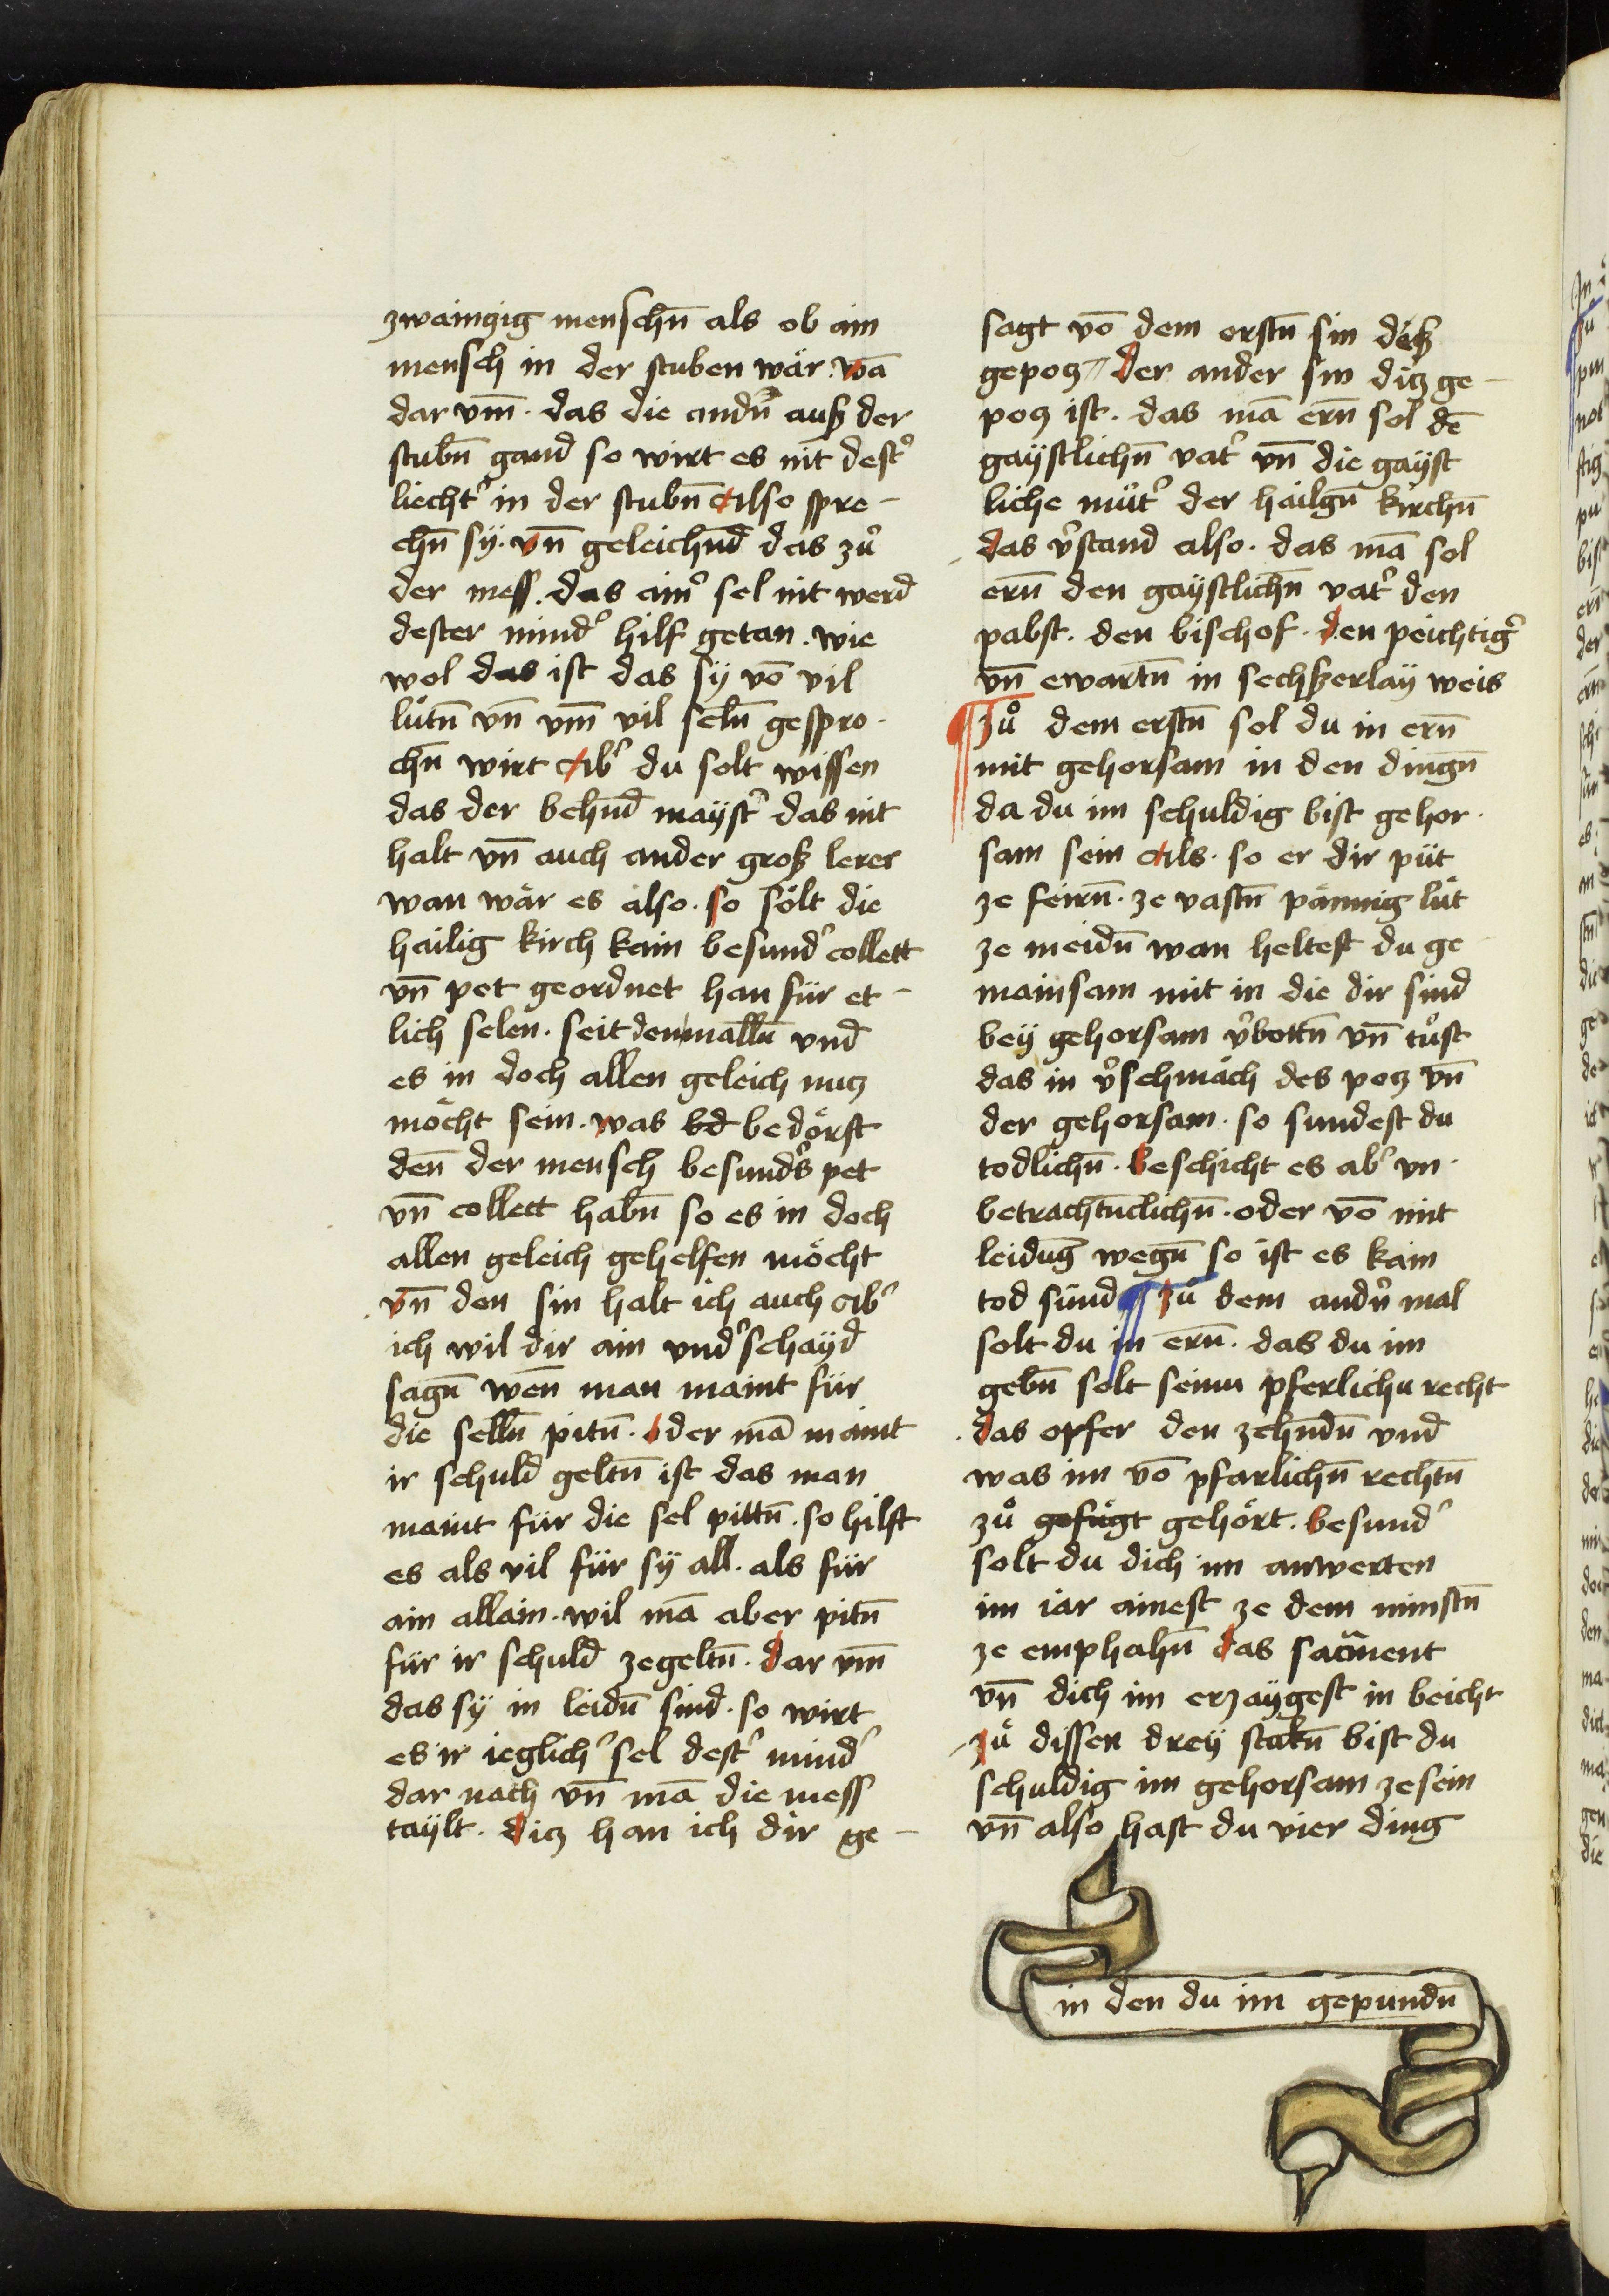 zwaingig menschn̄ als ob ain
mensch in der stuben wär. wā
dar vm̄. das die andn̄ auß der
stubn̄ gand so wirt es nit destʾ
liechtʾ in der stubn̄ Also spre-
chn̄ sy. vn̄ geleichnd̄ das zů
der mess. das aimʾ sel nit werd
dester mindʾ hilf getan. wie
wol das ist das sÿ vō vil
lütn̄ vn̄ vm̄ vil seln̄ gespro-
chn̄ wirt Abʾ du solt wissen
das der behnd̄ maÿstʾ das nit
halt vn̄ auch ander groß lerer
wan wär es also. so sölt die
hailig kirch kain besundʾ collett
vn̄ pet geordnet han für et-
lich selen. seit den malln̄ vnd
es in doch allen geleich nutz
möcht sein. was bedörst
den̄ der mensch besundʾs pet
vn̄ collett habn̄ so es in doch
allen geleich gehelfen möcht
vn̄ den sin halt ich auch Abʾ
ich wil dir ain vndʾschayd
sagn̄ wen̄ man maint für
die selln̄ pitn̄. oder mā maint
ir schuld geltn̄ ist das man
maint für die sel pittn̄. so hilft
es als vil für sÿ all. als für
ain allain. wil mā aber pitn̄
für ir schuld zegeltn̄. dar vm̄
das sÿ in leidn̄ sind. so wirt
es ir ieglichʾ sel destʾ mindʾ
dar nach vn̄ mā die mess
taÿlt. ditz han ich dir ge-
sagt vō dem erstn̄ sin deß
gepotz der ander sin ditz ge-
potz ist. das mā ern̄ sol dē
gaÿstlichn̄ vatʾ vn̄ die gaÿst
liche mütʾ der hailgn̄ kirchn̄
das vʾstand also. das mā sol
ern̄ den gaÿstlichn̄ vatʾ den
pabst. den bischof. den peichtigʾ
vn̄ ewartn̄ in sechßerlaÿ weis
¶ zů dem erstn̄ sol du in ern̄
mit gehorsam in den dingn̄
da du im schuldig bist gehor-
sam sein Als. so er dir püt
ze feirn̄. ze vastn̄ pännig lüt
ze meidn̄ wan heltest du ge
mainsam mit in die dir sind
beÿ gehorsam vʾbottn̄ vn̄ tůst
das in vʾschmäch des potz vn̄
der gehorsam. so sundest du
todlichn̄. beschicht es abʾ vn-
betrachtn̄clichn̄. oder vō mit
leidung wegn̄ so ist es kain
tod sünd ¶ zů dem andn̄ mal
solt du in ern̄. das du im
gebn̄ solt seinn pferlichn recht
das opfer den zehndn̄ vnd
was im vō pfarlichn̄ rechtn̄
zů gefůgt gehört. besundʾ
solt du dich im anwerten
im iar ainest ze dem minstn̄
ze emphahn̄ das sacm̄ent
vn̄ dich im erzaÿgest in beicht
zů dissen dreÿ stukn̄ bist du
schuldig im gehorsam ze sein
vn̄ also hast du vier ding
in den du im gepundn̄